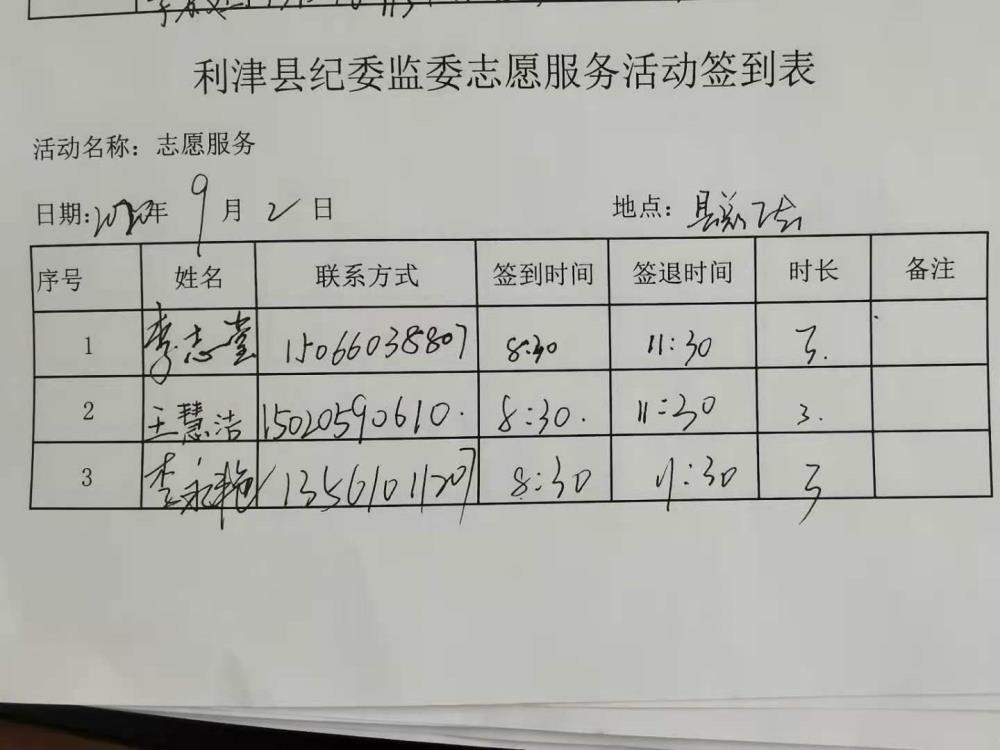 利津县纪委监委志愿服务活动签到表
活动名称：志愿服务
日期:2020年 9 月 2 日 地点: 县
序号 姓名 联系方式 签到时间 签退时间 时长 备注
1 李志堂 15066038807 8:30 11:30 3.
2 王慧洁 15020590610. 8:30. 11:30 3.
3 李永艳 13561011207 8:30 11:30 3